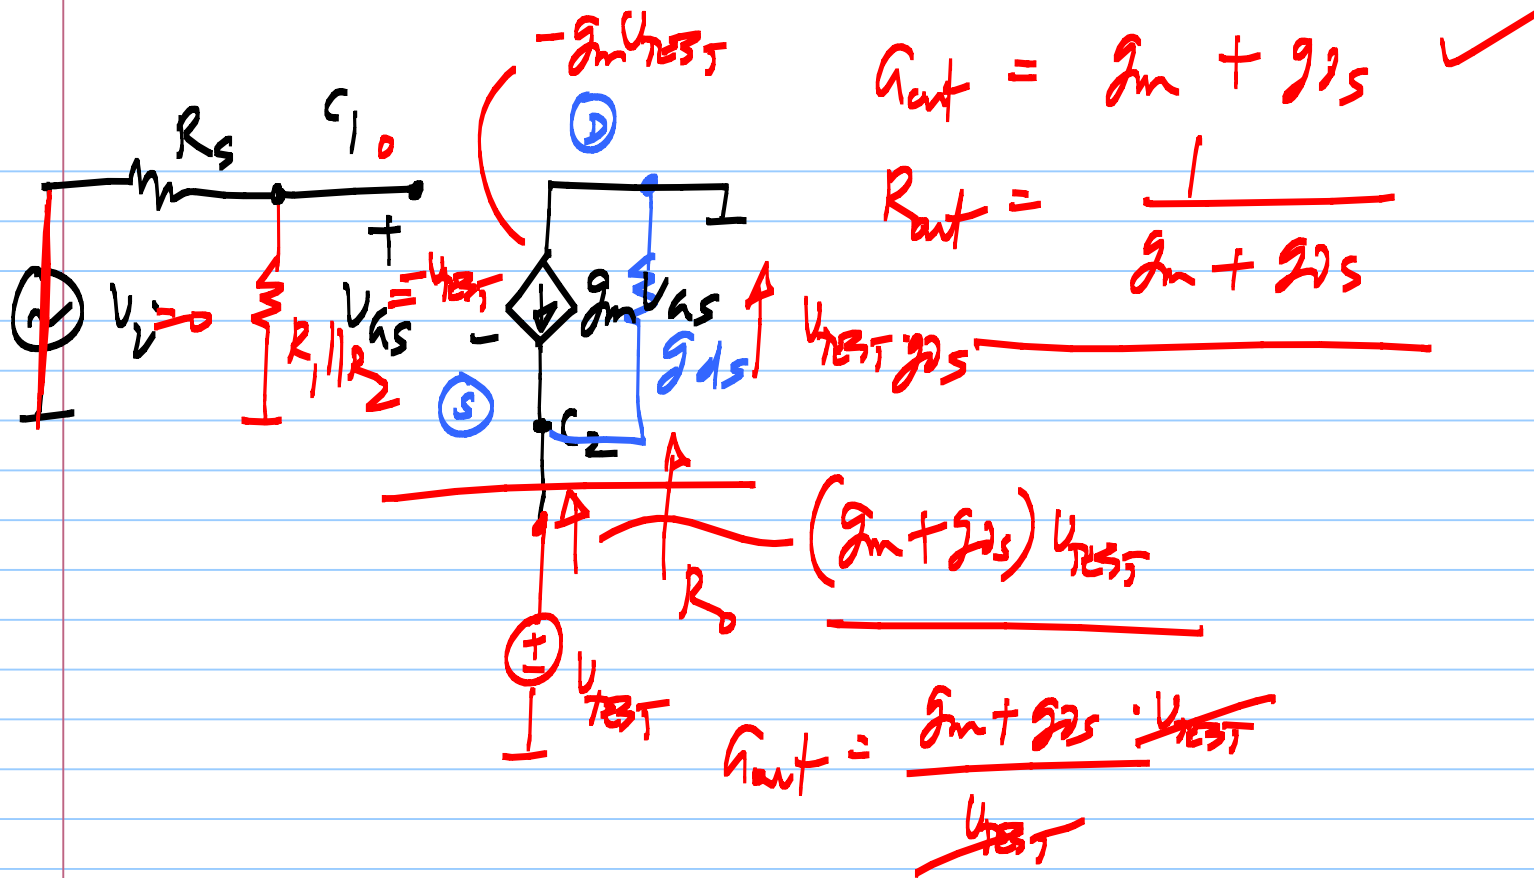 -gmVTEST
Gout = gm + gds ✓
D
Rs
C1 0
Rout = 1 / (gm + gds)
+
Vi = 0
R1||R2
VGS = -VTEST
-
gmVGS
gds
VTEST gds
S
C2
(gm + gds) VTEST
Ro
±
VTEST
Gout = gm + gds · VTEST / VTEST